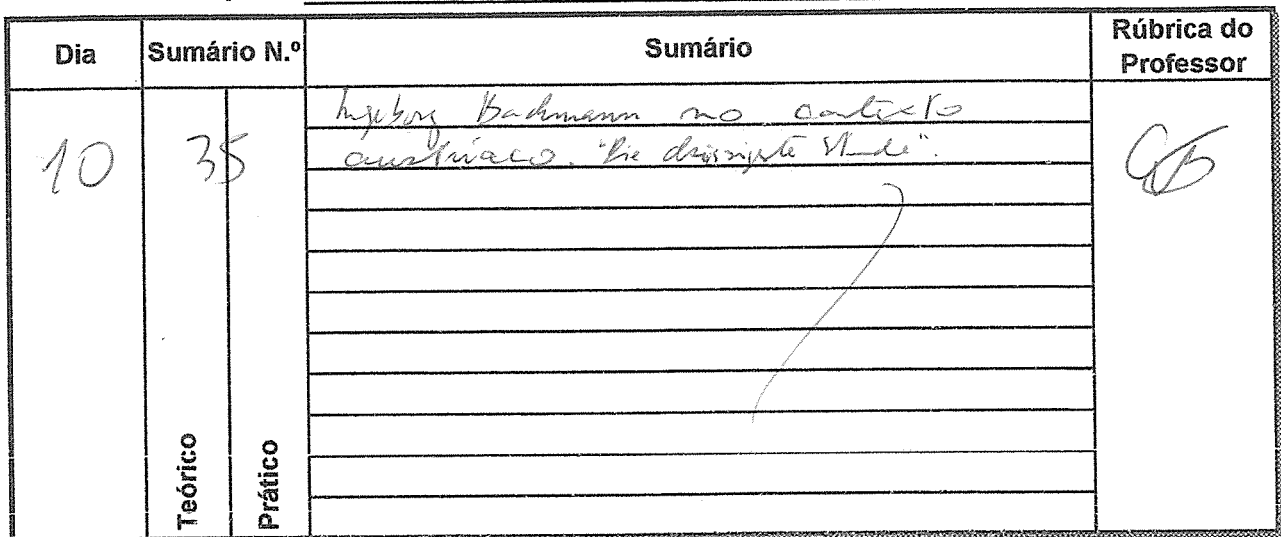 Dia Sumário N.º Sumário Rúbrica do Professor
10 35 Ingeborg Bachmann no contexto
austríaco. "Die dreissigste Stunde".
Teórico Prático